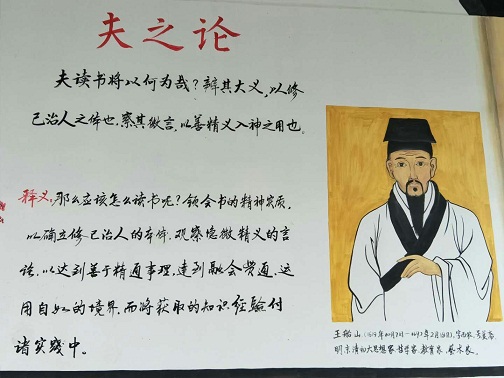 夫之论
夫读书将以何为哉?辨其大义,以修
己治人之体也,察其微言,以善精义入神之用也。
释义:那么应该怎么读书呢?领会书的精神实质,
以确立修己治人的本体,观察隐微精义的言
语,以达到善于精通事理,达到融会贯通、运
用自如的境界,而将获取的知识经验付
诸实践中。
王船山
明末清初大思想家 哲学家 教育家